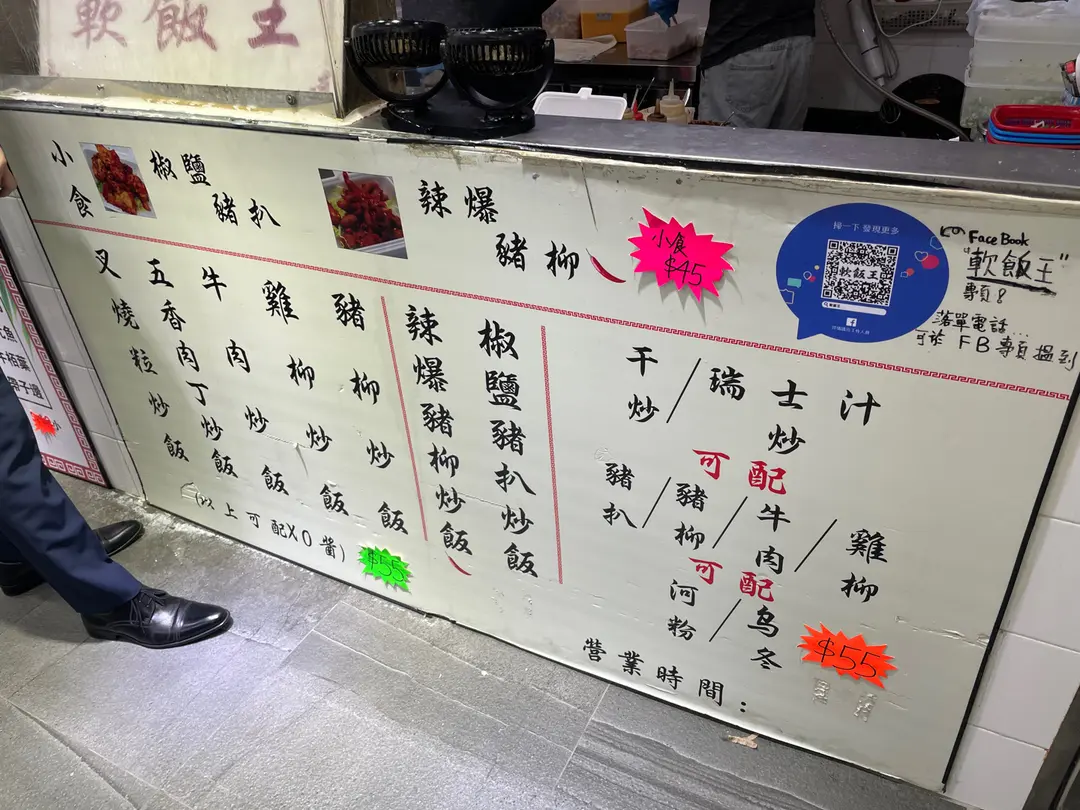 軟飯王
小食
椒鹽
豬扒
辣爆
豬柳
小食
$45
掃一下 發現更多
軟飯王
FaceBook
"軟飯王"
專頁
落單電話...
可於FB專頁搵到
叉燒粒炒飯
五香肉丁炒飯
牛肉炒飯
雞柳炒飯
豬柳炒飯
(以上可配XO醬)
$55
辣爆豬柳炒飯
椒鹽豬扒炒飯
干炒/瑞士汁炒
可配
豬扒/豬柳/牛肉/雞柳
可配
河粉/烏冬
$55
營業時間: